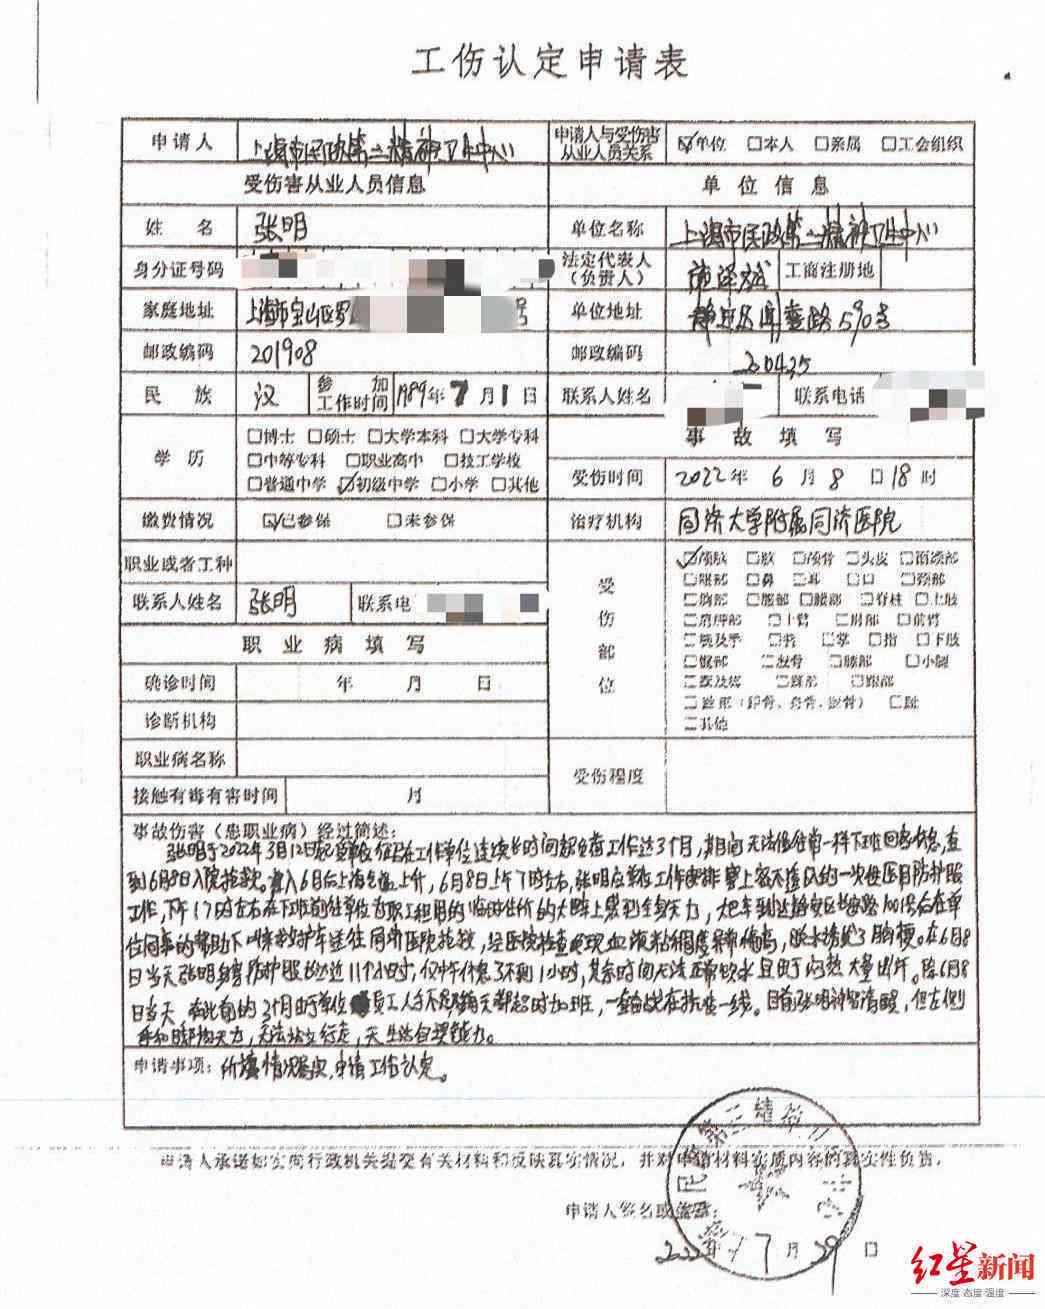 工伤认定申请表
申请人 上海市民政第三精神卫生中心 申请人与受伤害从业人员关系 ☑单位 □本人 □亲属 □工会组织
受伤害从业人员信息 单位信息
姓名 张明 单位名称 上海市民政第三精神卫生中心
身分证号码 法定代表人(负责人) 工商注册地
家庭地址 上海市宝山区罗 号 单位地址 静安区闻喜路590号
邮政编码 201908 邮政编码 200435
民族 汉 参加工作时间 1989年7月1日 联系人姓名 联系电话
事故填写
学历 □博士 □硕士 □大学本科 □大学专科
□中等专科 □职业高中 □技工学校
□普通中学 ☑初级中学 □小学 □其他
受伤时间 2022年6月8日18时
缴费情况 ☑已参保 □未参保 治疗机构 同济大学附属同济医院
职业或者工种
联系人姓名 张明 联系电
受伤部位 ☑颅脑 □颌骨 □头皮 □面颌部
□眼部 □鼻 □耳 □口 □颈部
□胸部 □腹部 □腰部 □脊柱 □上肢
□肩胛部 □上臂 □肘部 □前臂
□腕及手 □掌 □指 □下肢
□髋部 □股骨 □小腿
□其他
职业病填写
确诊时间 年 月 日
诊断机构
职业病名称
接触有毒有害时间 月
受伤程度
事故伤害(患职业病)经过简述:
张明于2022年3月12日起 在工作单位连续长时间超负荷工作达3个月,期间无法像往常一样下班回家休息,直
到6月8日入院抢救。进入6月后上海气温上升,6月8日上午7时左右,张明应单位工作安排穿上密不透风的一次性医用防护服
工作,下午17时左右在下班前往单位为职工租用的临时住所的大巴车上感到全身无力,大巴车到达静安区 路1001号后在单
位同事的帮助下叫来救护车送往同济医院抢救,经医院检查发现血液粘稠度异常偏高,脱水诱发了脑梗。在6月8
日当天张明身穿防护服长达近11个小时,仅中午休息了不到1小时,其余时间无法正常饮水且由于闷热大量出汗。除6月8
日当天,在此前的3个月由于单位员工人手不足每天都超时加班,一直奋战在抗疫一线。目前张明神智清醒,但左侧
手和脚均无力,无法站立行走,无生活自理能力。
申请事项:所填情况属实,申请工伤认定。
申请人承诺如实向行政机关提交有关材料和反映真实情况,并对申请材料实质内容的真实性负责。
申请人签名或盖章:
2022年7月29日
红星新闻
深度 态度 温度